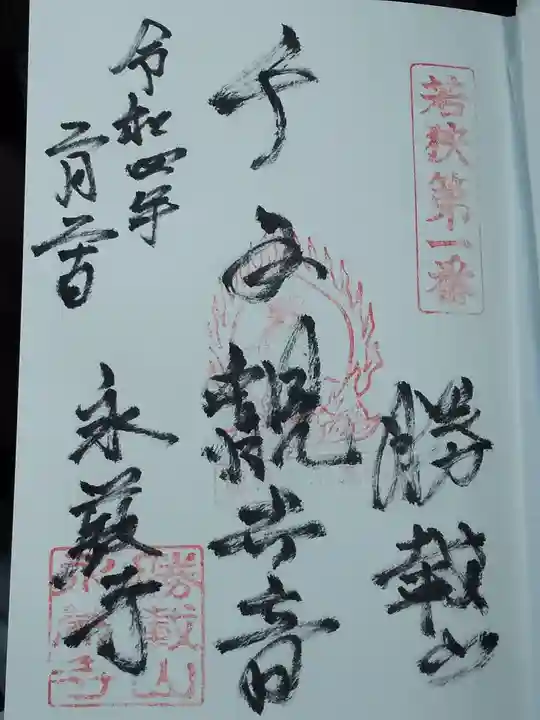 若狭第一番
勝載山
千手観世音
永厳寺
令和四年
二月二十日
勝載山
永厳寺